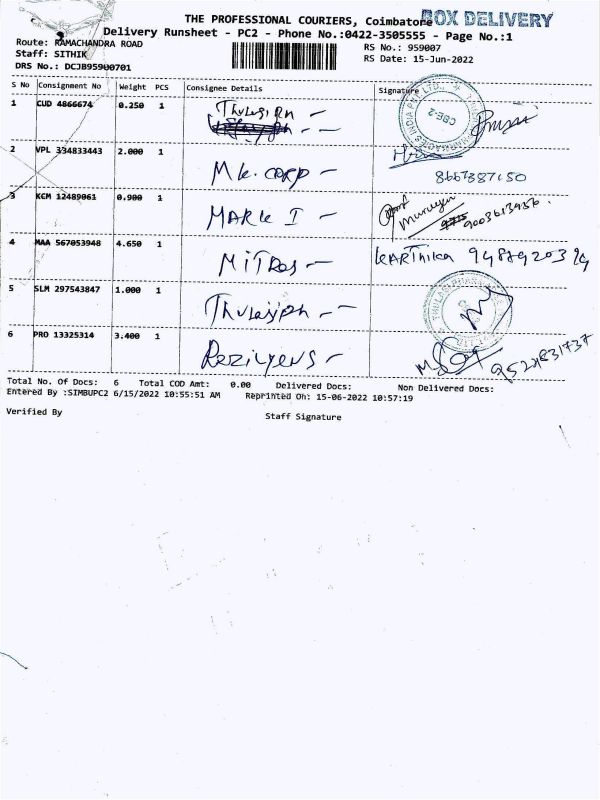 THE PROFESSIONAL COURIERS, Coimbatore
BOX DELIVERY
Delivery Runsheet - PC2 - Phone No.:0422-3505555 - Page No.:1
Route: RAMACHANDRA ROAD
RS No.: 959007
Staff: SITHIK
RS Date: 15-Jun-2022
DRS No.: DCJB95900701
S No Consignment No Weight PCS Consignee Details Signature
1 CUD 4866674 0.250 1
CBE-2
2 VPL 334833443 2.000 1 Mk. corp -
8667387150
3 KCM 12489061 0.900 1 MARK I -
Murugan
9003613956.
4 MAA 567053948 4.650 1 MITRos - KARThika
5 SLM 297543847 1.000 1
6 PRO 13325314 3.400 1
Total No. Of Docs: 6 Total COD Amt: 0.00 Delivered Docs: Non Delivered Docs:
Entered By :SIMBUPC2 6/15/2022 10:55:51 AM Reprinted On: 15-06-2022 10:57:19
Verified By
Staff Signature